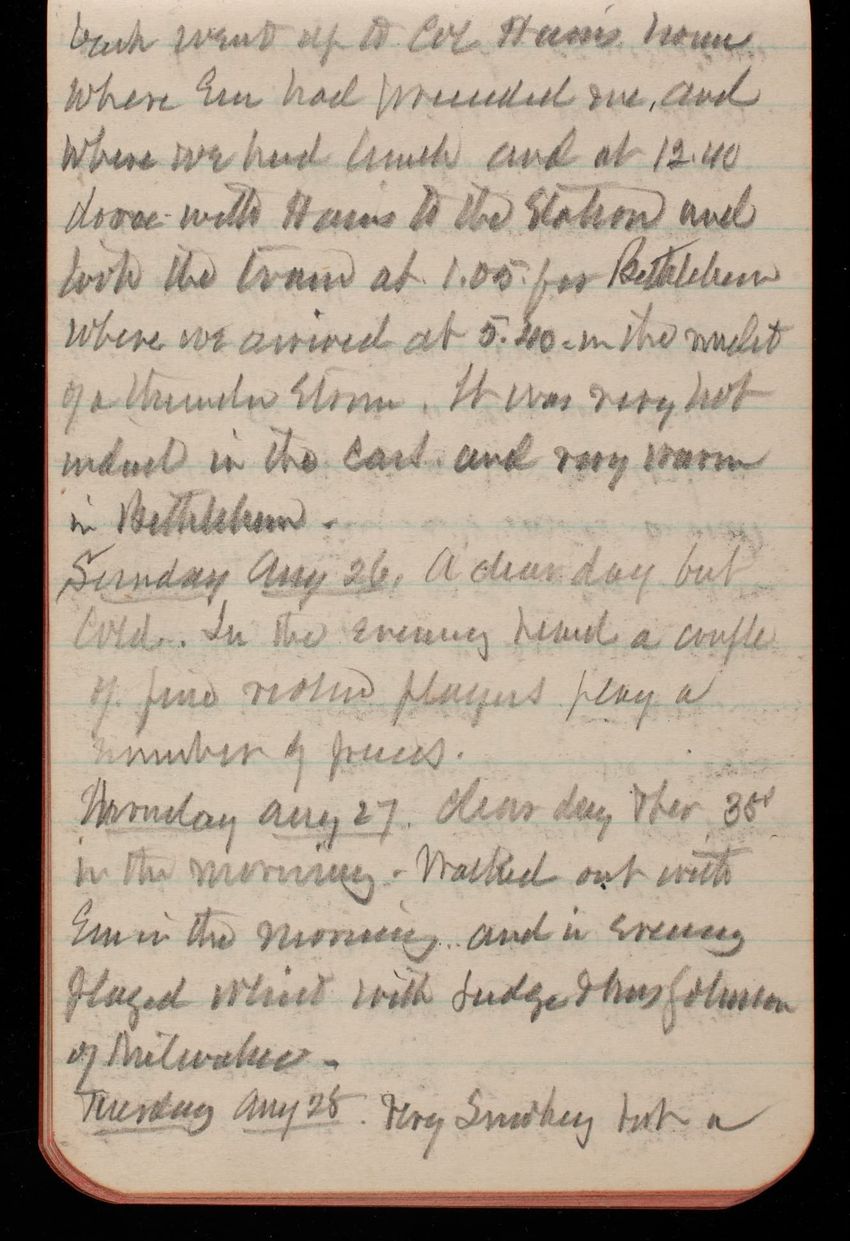 back went up to Col Hains house
where Em had preceeded me, and
where we had lunch and at 12.40
drove with Hains to the Station and
took the train at 1.05 for Bethlehem
where we arrived at 5.40 in the midst
of a thunder Storm. It was very hot
indeed in the cars and very warm
in Bethlehem -
Sunday Aug 26, A clear day but
Cold. In the evening heard a couple
of fine violin players play a
number of pieces.
Monday Aug 27. Clear day Ther 38°
in the morning - Walked out with
Em in the morning and in evening
played whist with Judge & Mrs Johnson
of Milwakee -
Tuesday Aug 28. Very Smokey but a